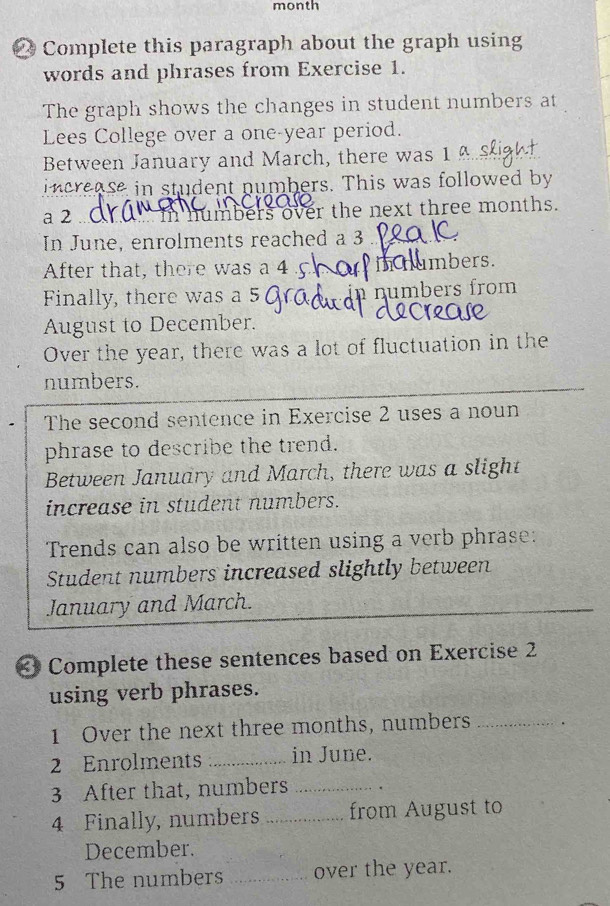 month
2 Complete this paragraph about the graph using
words and phrases from Exercise 1.
The graph shows the changes in student numbers at
Lees College over a one-year period.
Between January and March, there was 1 a slight
increase in student numbers. This was followed by
a 2 dramatic increase in numbers over the next three months.
In June, enrolments reached a 3 peak.
After that, there was a 4 sharp fall in numbers.
Finally, there was a 5 gradual decrease in numbers from
August to December.
Over the year, there was a lot of fluctuation in the
numbers.
The second sentence in Exercise 2 uses a noun
phrase to describe the trend.
Between January and March, there was a slight
increase in student numbers.
Trends can also be written using a verb phrase:
Student numbers increased slightly between
January and March.
3 Complete these sentences based on Exercise 2
using verb phrases.
1 Over the next three months, numbers ............... .
2 Enrolments ............... in June.
3 After that, numbers ............... .
4 Finally, numbers ............... from August to
December.
5 The numbers ............... over the year.